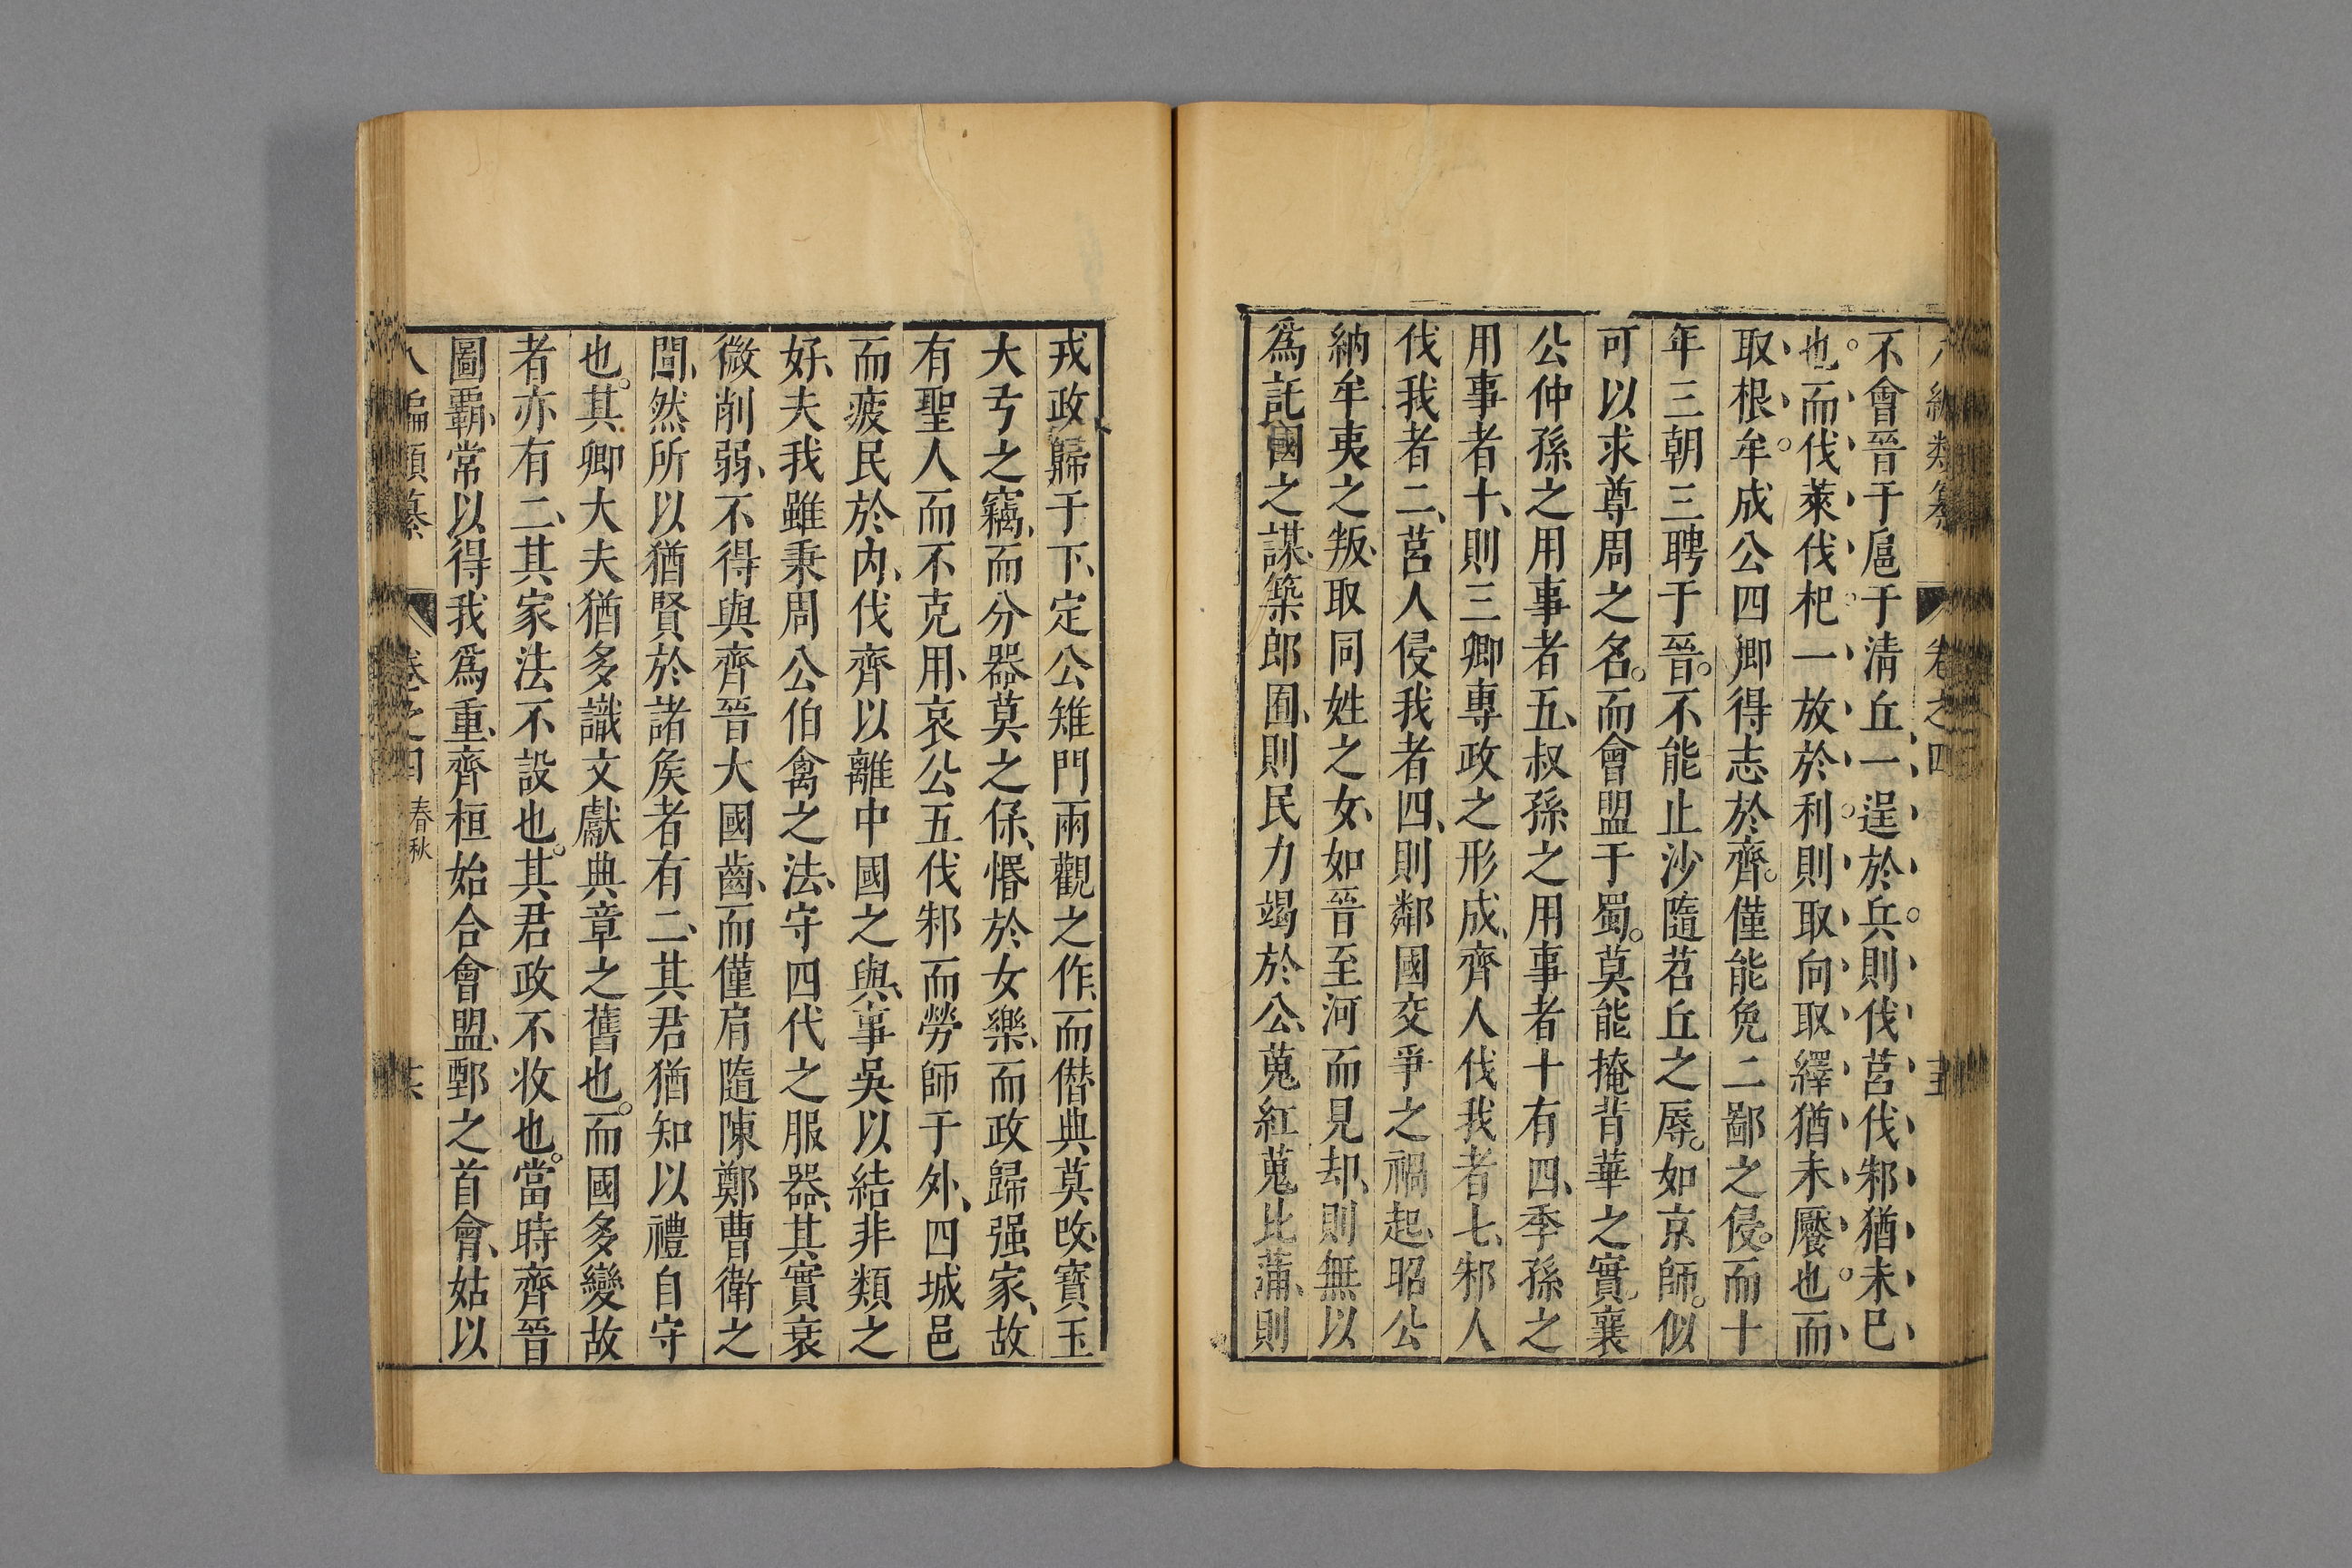 不會晉于扈于清丘一逞於兵。則伐莒伐邾猶未已
也。而伐萊伐杞一放於利。則取向取繹猶未饜也。而
取根牟。成公四卿得志於齊。僅能免二鄙之侵。而十
年三朝三聘于晉。不能止沙隨苕丘之辱。如京師。似
可以求尊周之名。而會盟于蜀。莫能掩背華之實。襄
公仲孫之用事者五、叔孫之用事者十有四、季孫之
用事者十、則三卿專政之形成、齊人伐我者七、邾人
伐我者二、莒人侵我者四、則鄰國交爭之禍起、昭公
納牟夷之叛、取同姓之女、如晉至河而見却、則無以
為託國之謀、築郎囿、則民力竭於公、蒐紅蒐比蒲、則
戎政歸于下、定公雉門兩觀之作、而僣典莫攺、寶玉
大弓之竊、而分器莫之保、惛於女樂、而政歸强家、故
有聖人而不克用、哀公五伐邾而勞師于外、四城邑
而疲民於內、伐齊以離中國之與、事吳以結非類之
好、夫我雖秉周公伯禽之法、守四代之服器、其實衰
微削弱、不得與齊晉大國齒、而僅肩隨陳鄭曹衛之
間、然所以猶賢於諸矦者有二、其君猶知以禮自守
也。其卿大夫猶多識文獻典章之舊也。而國多變故
者亦有二、其家法不設也。其君政不收也。當時齊晉
圖覇、常以得我為重、齊桓始合會盟、鄄之首會、姑以
八編類纂
卷之四
春秋